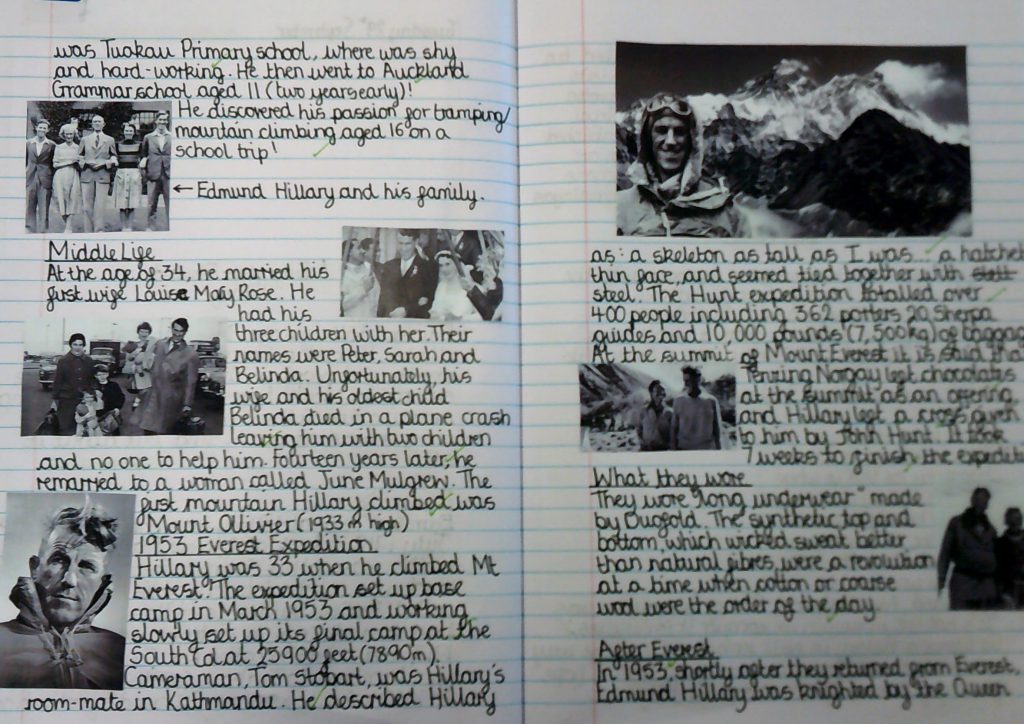 was Tuakau Primary school, where was shy
and hard-working. He then went to Auckland
Grammar school aged 11 (two years early)!
He discovered his passion for tramping/
mountain climbing aged 16 on a
school trip!
← Edmund Hillary and his family.
Middle Life
At the age of 34, he married his
first wife Louise Mary Rose. He
had his
three children with her. Their
names were Peter, Sarah and
Belinda. Unfortunately, his
wife and his oldest child
Belinda died in a plane crash
leaving him with two children
and no one to help him. Fourteen years later, he
remarried to a woman called June Mulgrew. The
first mountain Hillary climbed was
Mount Ollivier (1933 m high)
1953 Everest Expedition
Hillary was 33 when he climbed Mt
Everest. The expedition set up base
camp in March 1953 and working
slowly set up its final camp at the
South Col at 25900 feet (7890m).
Cameraman, Tom stobart, was Hillary's
room-mate in Kathmandu. He described Hillary
as: a skeleton as tall as I was... a hatchet
thin face, and seemed tied together with
steel. The Hunt expedition totalled over
400 people including 362 porters 20 Sherpa
guides and 10,000 pounds (7,500kg) of
At the summit of Mount Everest it is said
Tenzing Norgay left chocolates
at the summit as an offering
and Hillary left a cross given
to him by John Hunt. It took
7 weeks to finish the
What they wore
They wore "long underwear" made
by Dugfold. The synthetic top and
bottom, which wicked sweat better
than natural fibres, were a revolution
at a time when cotton or coarse
wool were the order of the day.
After Everest
In 1953, shortly after they returned from Everest,
Edmund Hillary was knighted by the Queen